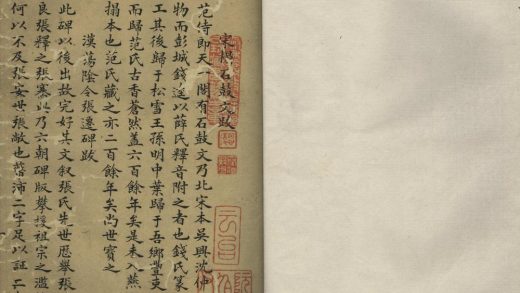 宋搨石鼓文跋
范侍郎天一閣有石鼓文乃北宋本吳興沈仲
物而彭城錢逵以薛氏釋音附之者也錢氏篆
工其後歸于松雪王孫明中葉歸于吾鄉豐吏
而歸范氏古香蒼然蓋六百餘年矣是未入燕
搨本也范氏藏之亦二百餘年矣尚世寶之
漢蕩陰令張遷碑跋
此碑以後出故完好其文叙張氏先世歷舉張
良張釋之張騫此乃六朝碑版攀援祖宗之濫
何以不及張安世張敞也沛二字足以証二
云台